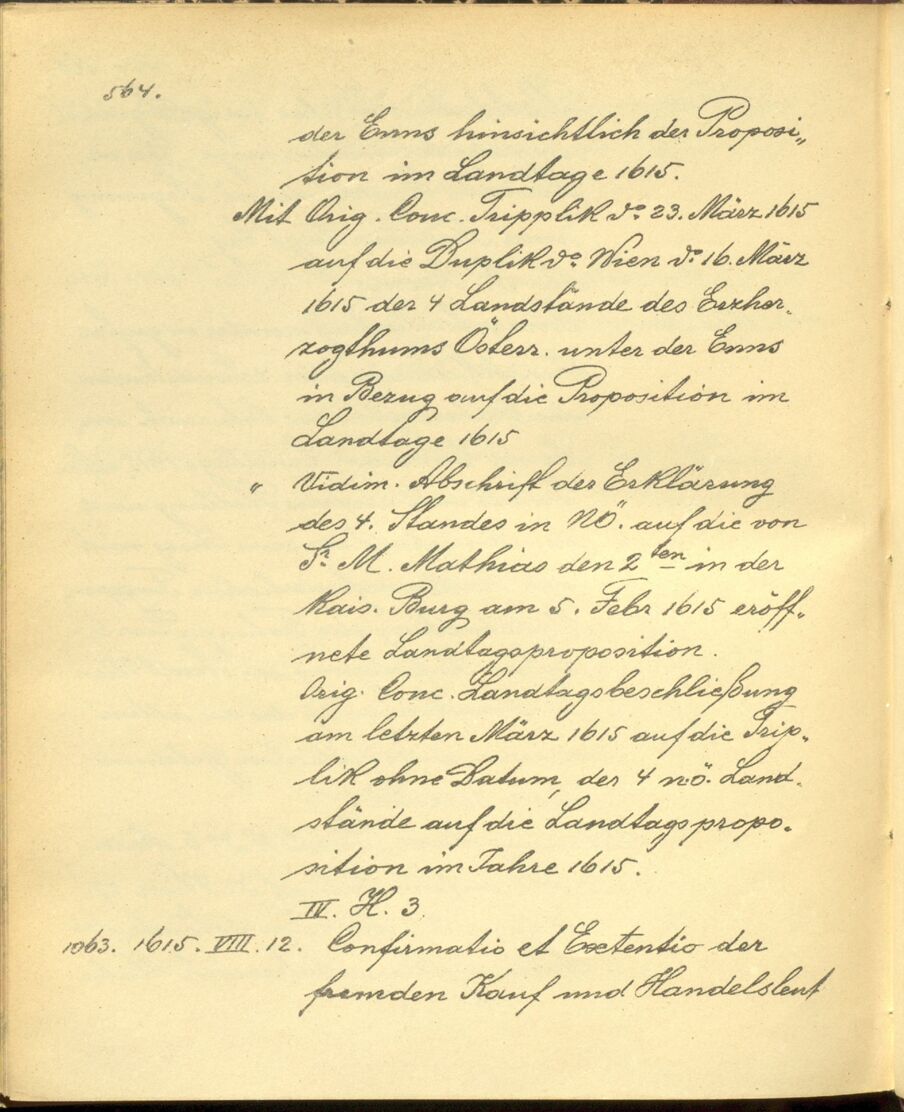 564.
der Enns hinsichtlich der Proposi„
tion im Landtage 1615.
Mit Orig. Conc. Tripplik do 23. März 1615
auf die Duplik do Wien do 16. März
1615 der 4 Landstände des Erzher„
zogthums Österr. unter der Enns
in Bezug auf die Proposition im
Landtage 1615
„ Vidim. Abschrift der Erklärung
des 4. Standes in NÖ. auf die von
Sr. M. Mathias den 2ten in der
Kais. Burg am 5. Febr 1615 eröff„
nete Landtagsproposition.
Orig. Conc. Landtagsbeschließung
am letzten März 1615 auf die Trip„
lik ohne Datum, der 4 nö. Land„
stände auf die Landtagspropo„
sition im Jahre 1615.
IV. H. 3
1063. 1615. VIII. 12. Confirmatio et Extentio der
fremden Kauf und Handelsleut